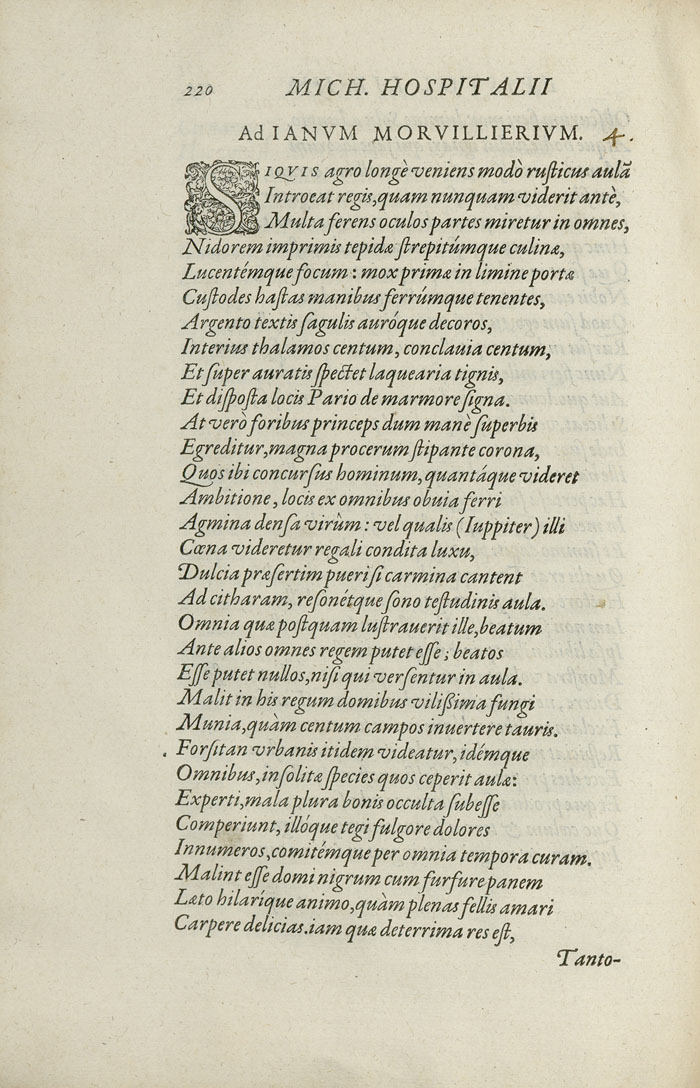 220 MICH. HOSPITALII
Ad IANVM MORVILLIERIVM. 4.
SIQVIS agro longè veniens modò rusticus aulã
Introeat regis, quam nunquam viderit antè,
Multa ferens oculos partes miretur in omnes,
Nidorem imprimis tepidæ strepitúmque culinæ,
Lucentémque focum: mox primæ in limine portæ
Custodes hastas manibus ferrúmque tenentes,
Argento textis sagulis auróque decoros,
Interius thalamos centum, conclauia centum,
Et super auratis spectet laquearia tignis,
Et disposta locis Pario de marmore signa.
At verò foribus princeps dum manè superbis
Egreditur, magna procerum stipante corona,
Quos ibi concursus hominum, quantáque videret
Ambitione, locis ex omnibus obuia ferri
Agmina densa virûm: vel qualis (Iuppiter) illi
Cœna videretur regali condita luxu,
Dulcia præsertim pueri si carmina cantent
Ad citharam, resonétque sono testudinis aula.
Omnia quæ postquam lustrauerit ille, beatum
Ante alios omnes regem putet esse; beatos
Esse putet nullos, nisi qui versentur in aula.
Malit in his regum domibus vilißima fungi
Munia, quàm centum campos inuertere tauris.
Forsitan vrbanis itidem videatur, idémque
Omnibus, insolitæ species quos ceperit aulæ:
Experti, mala plura bonis occulta subesse
Comperiunt, illóque tegi fulgore dolores
Innumeros, comitémque per omnia tempora curam.
Malint esse domi nigrum cum furfure panem
Læto hilaríque animo, quàm plenas fellis amari
Carpere delicias. iam quæ deterrima res est,
Tanto-